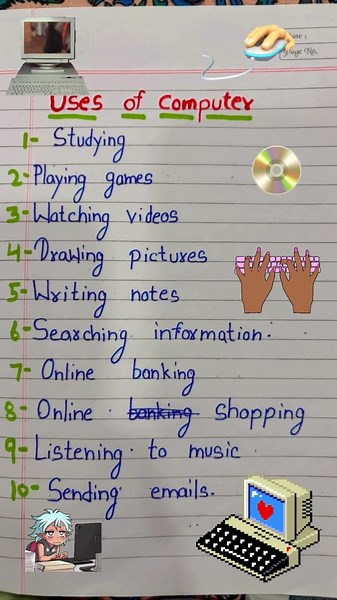 Page No.
Uses of Computer
1- Studying
2- Playing games
3- Watching videos
4- Drawing pictures
5- Writing notes
6- Searching information.
7- Online banking
8- Online banking shopping
9- Listening to music
10- Sending emails.